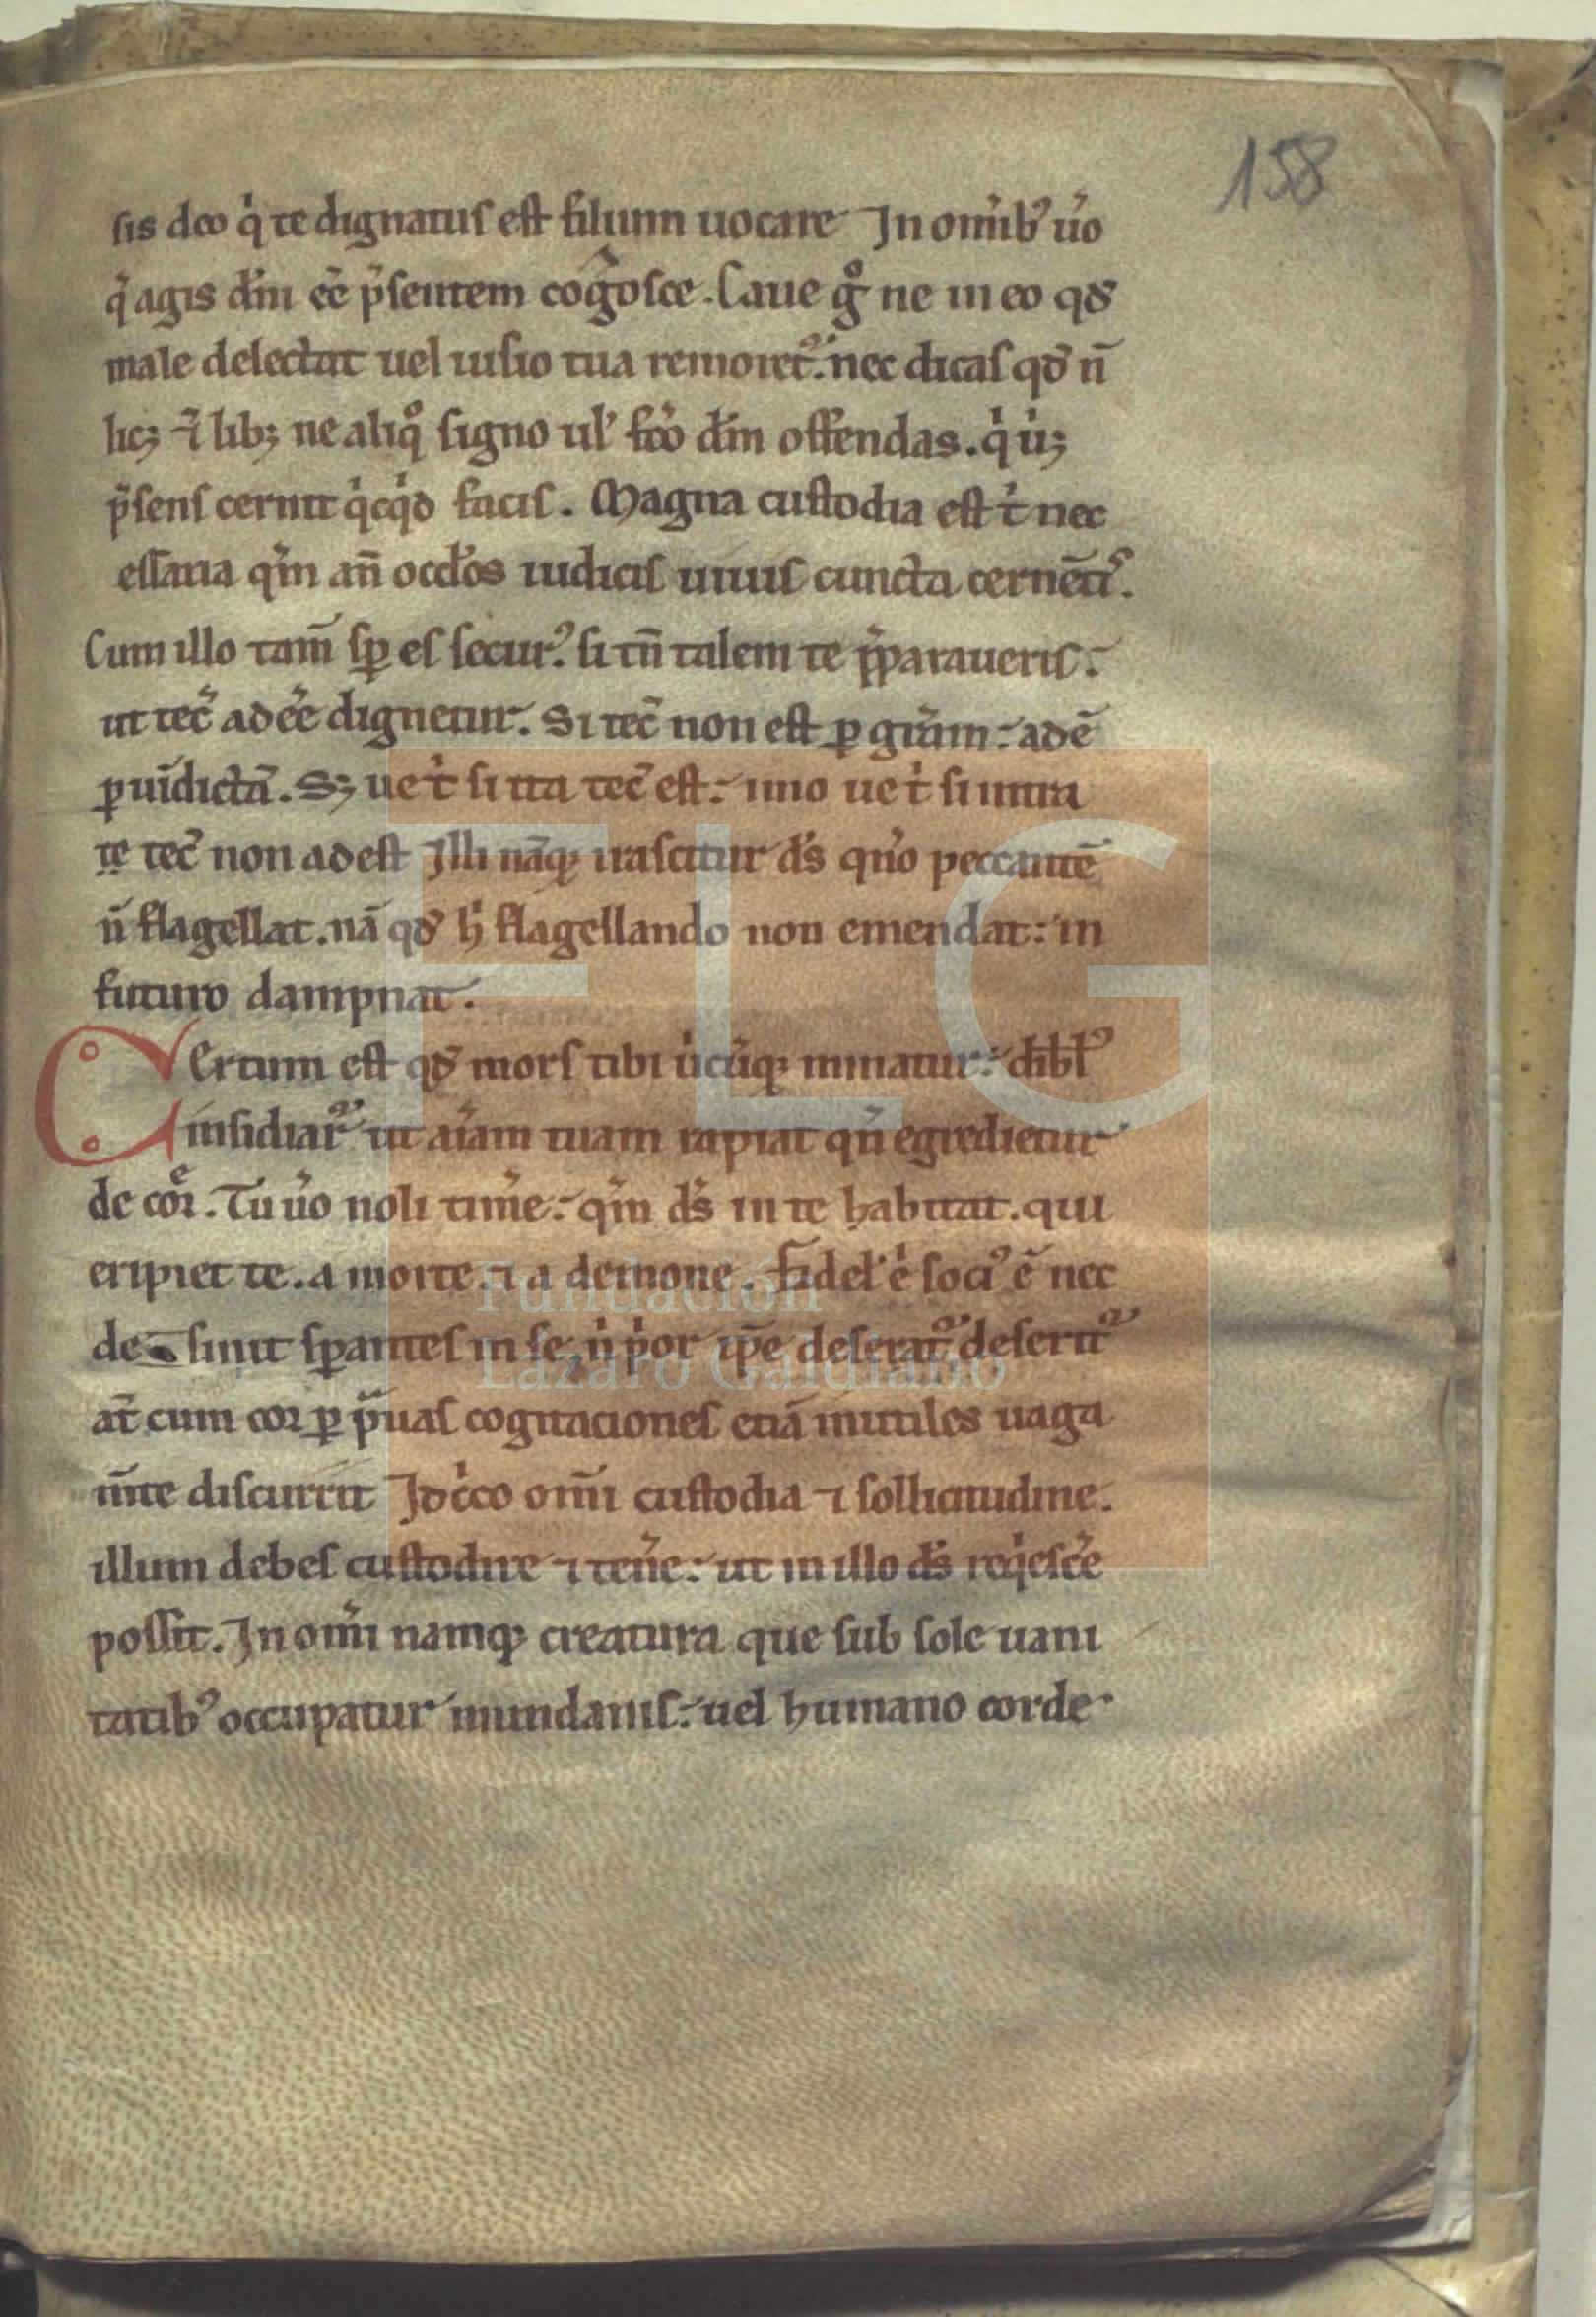 158
sis deo qͥ te dignatus est filium uocare In omib᷒ uͦo
qͥ agis dm̄ ēē p̄sentem cognosce. Caue gͦ ne in eo qđ
male delectat uel uisio tua remoret᷒. nec dicas qđ n̄
lic; ⁊ lib; ne aliqͦ signo ul' fco dm̄ offendas. qͥ ui;
p̄sens cernit qͥcqͥd facis. Magna custodia est tͥ nec
essaria qm̄ an̄ occl'os iudicis uiuis cuncta cernētis.
Cum illo tam̄ sp̄ es secur᷒. si tn̄ talem te p̄paraueris.
ut tec̄ adēē dignetur. Si tec̄ non est ꝑ grām. adē
ꝑ uīdictā. S; ue tͥ si ita tec̄ est. imo ue tͥ si intra
te tec̄ non adest Illi nāq; irascitur ds̄ qn̄o peccantē
n̄ flagellat. nā qđ hͥ flagellando non emendat. in
futuro dampnat.
Certum est qđ mors tibi uͥcūq; minatur. diabl᷒
insidiat᷒ ut aīam tuam rapiat qn̄ egredietur
de cor̄e. Tu uͦo noli tim̄e. qm̄ ds̄ in te habitat. qui
eripiet te. a morte. ⁊ a demone. Fidel' ē soci᷒ ē nec
de sinit sꝑantes in se, nͥ pͥor ip̄e deserat᷒. deserit᷒
at̄ cum cor ꝑ p̄uas cogitaciones etiā inutiles uaga
m̄te discurrit Idcͥco om̄i custodia ⁊ sollicitudine.
illum debes custodire ⁊ ten̄e. ut in illo ds̄ reqͥesc̄e
possit. In om̄i namq; creatura que sub sole uani
tatib᷒ occupatur mundanis. uel humano corde
FLG
Fundación
Lázaro Galdiano